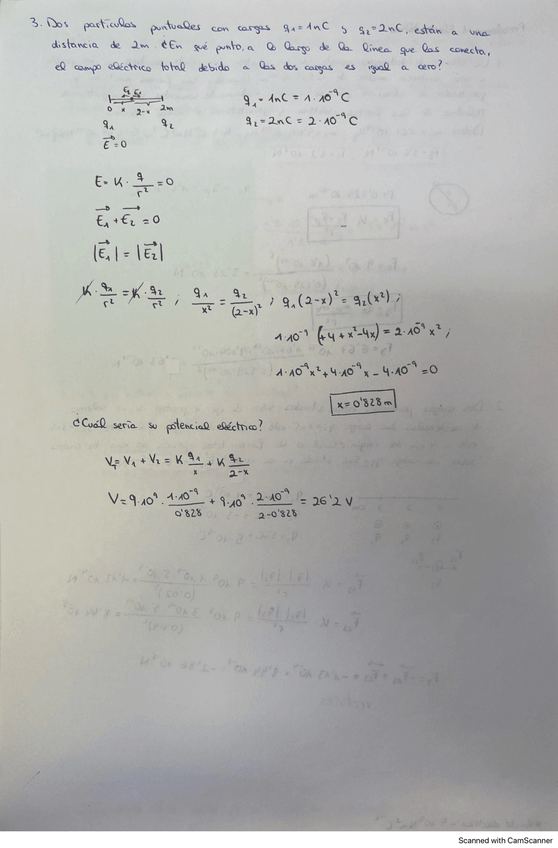 3. Dos partículas puntuales con cargas q₁ = 1nC y q₂ = 2nC, están a una
distancia de 2m. ¿En qué punto, a lo largo de la línea que las conecta,
el campo eléctrico total debido a las dos cargas es igual a cero?
0 x 2-x 2m
q₁ q₂
E⃗=0
q₁ = 1nC = 1·10⁻⁹ C
q₂ = 2nC = 2·10⁻⁹ C
E = K · q/r² = 0
E₁⃗ + E₂⃗ = 0
|E₁⃗| = |E₂⃗|
K · q₁/r² = K · q₂/r² ; q₁/x² = q₂/(2-x)² ; q₁(2-x)² = q₂(x²) ;
1·10⁻⁹ (+4+x²-4x) = 2·10⁻⁹ x² ;
1·10⁻⁹x² + 4·10⁻⁹x - 4·10⁻⁹ = 0
x = 0'828 m
¿Cuál sería su potencial eléctrico?
V_T = V₁ + V₂ = K q₁/x + K q₂/2-x
V = 9·10⁹ · 1·10⁻⁹/0'828 + 9·10⁹ · 2·10⁻⁹/2-0'828 = 26'2 V
Scanned with CamScanner